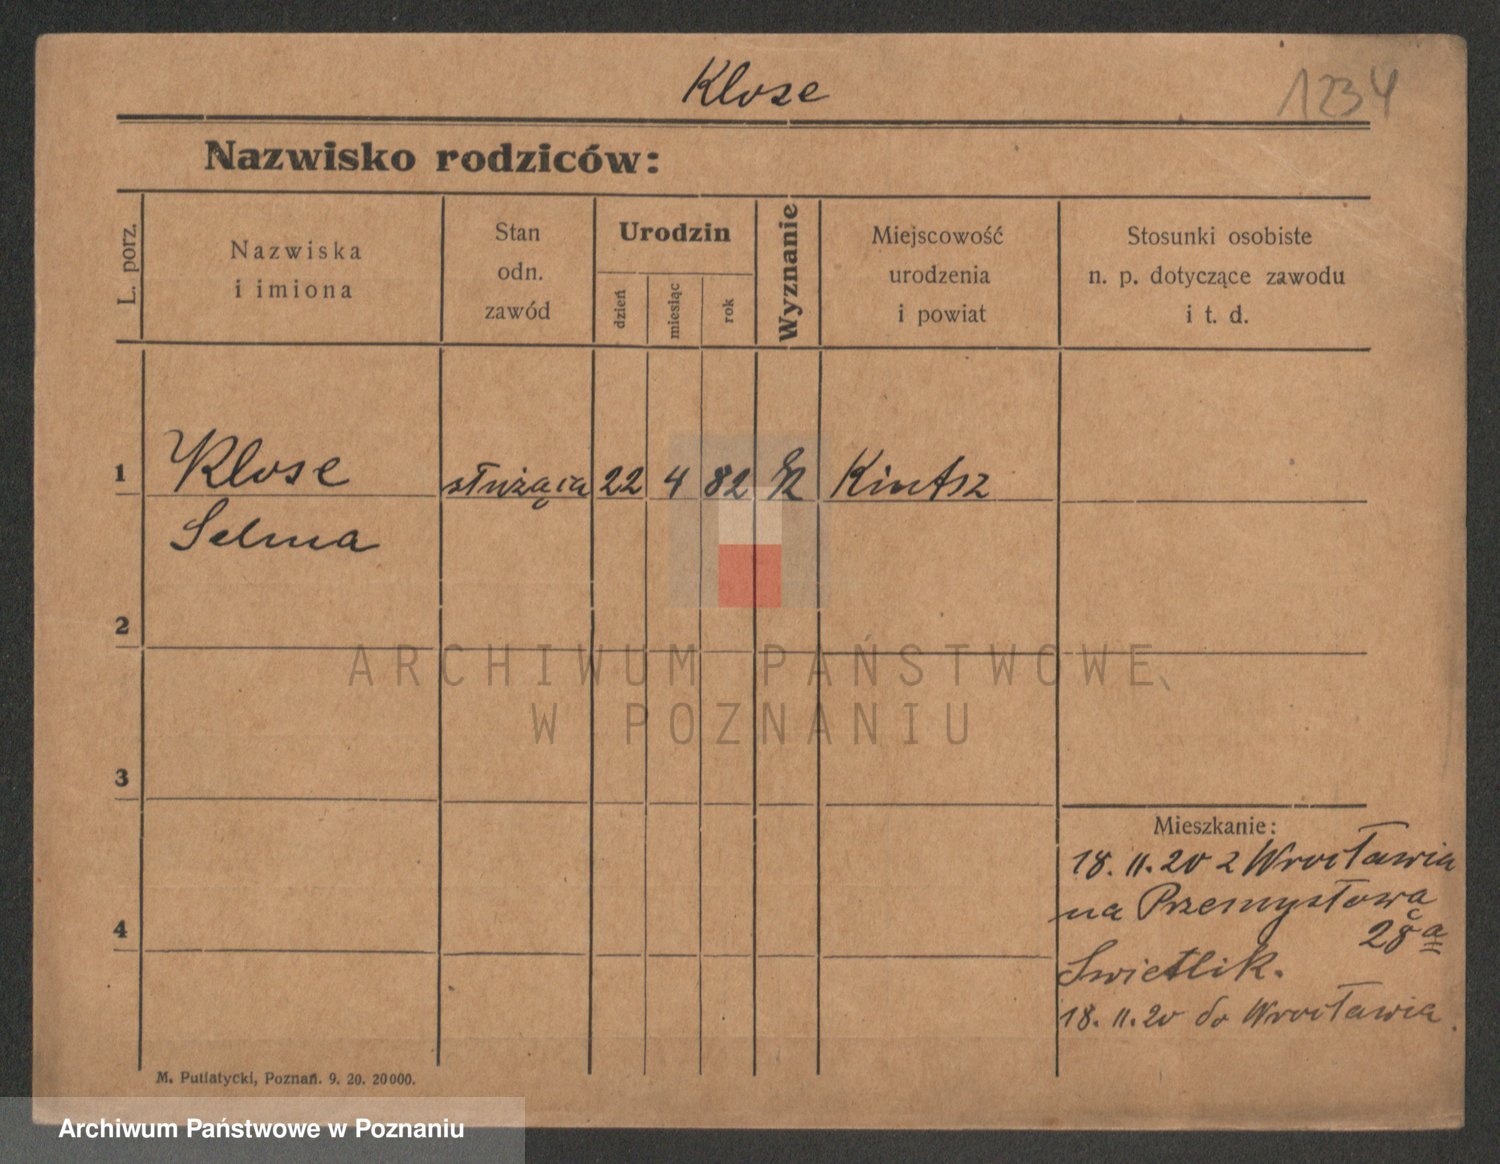 Klose
1234
Nazwisko rodziców:
L. porz.
Nazwiska
i imiona
Stan
odn.
zawód
Urodzin
dzień
miesiąc
rok
Wyznanie
Miejscowość
urodzenia
i powiat
Stosunki osobiste
n. p. dotyczące zawodu
i t. d.
1 Klose służąca 22 4 82 Kintsz
Selma
2
3
4
Mieszkanie:
18. 11. 20 z Wrocławia
na Przemysłową
28 a
Swietlik.
18. 11. 20 do Wrocławia.
M. Putiatycki, Poznań. 9. 20. 20000.
ARCHIWUM PAŃSTWOWE
W POZNANIU
Archiwum Państwowe w Poznaniu